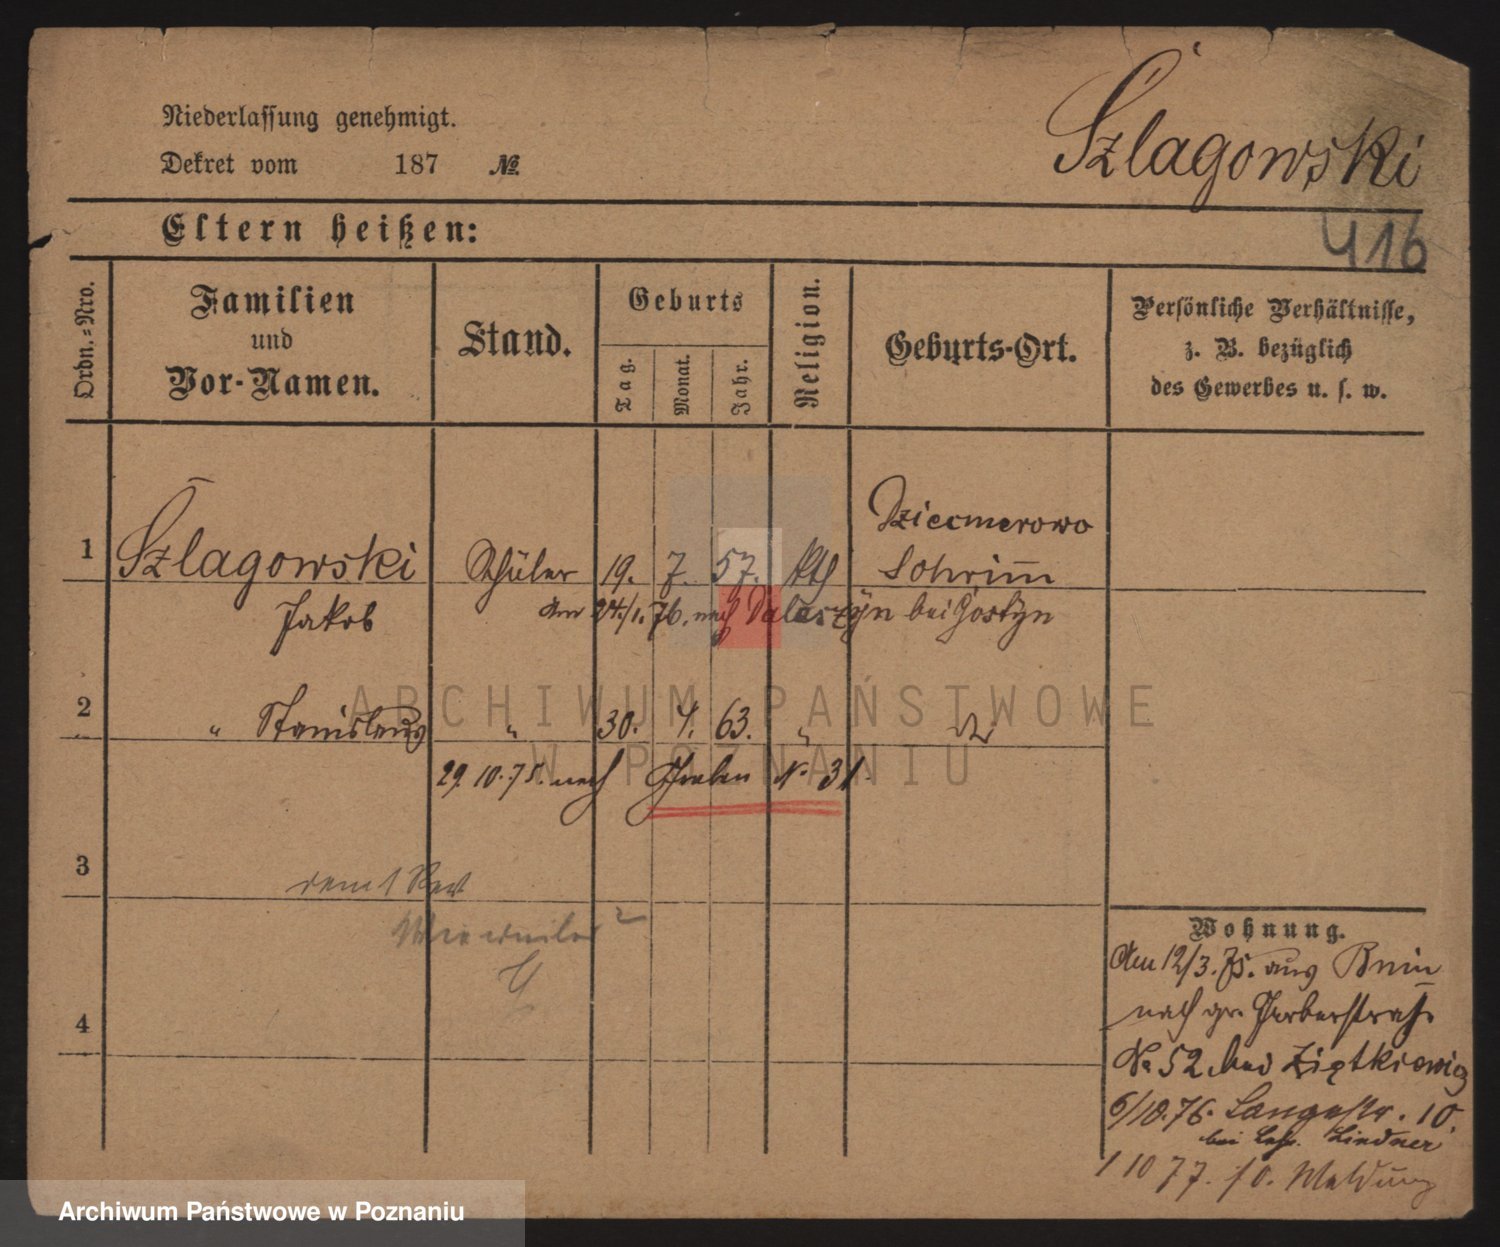 Szlagowski
Niederlassung genehmigt.
Dekret vom 187 №
416
Eltern heißen:
Ordn.-Nro.
Familien
und
Vor-Namen.
Stand.
Geburts
Tag.
Monat.
Jahr.
Religion.
Geburts-Ort.
Persönliche Verhältnisse,
z. B. bezüglich
des Gewerbes u. s. w.
Dziecmerowo
1 Szlagowski Schüler 19. 7. 57. Kth Schrimm
Jakob am 24./1. 76. nach Daleszyn bei Gostyn
2 " Stanislaus " 30. 4. 63. " do
29. 10. 75. nach Graben № 31.
3
4
Wohnung.
Am 12/3. 75. aus Bnin
nach gr. Gerberstraße
No 52 bei Ziętkiewicz
6/10. 76. Langestr. 10.
bei Lindner
1 10 77. Meldung
ARCHIWUM PAŃSTWOWE
W POZNANIU
Archiwum Państwowe w Poznaniu